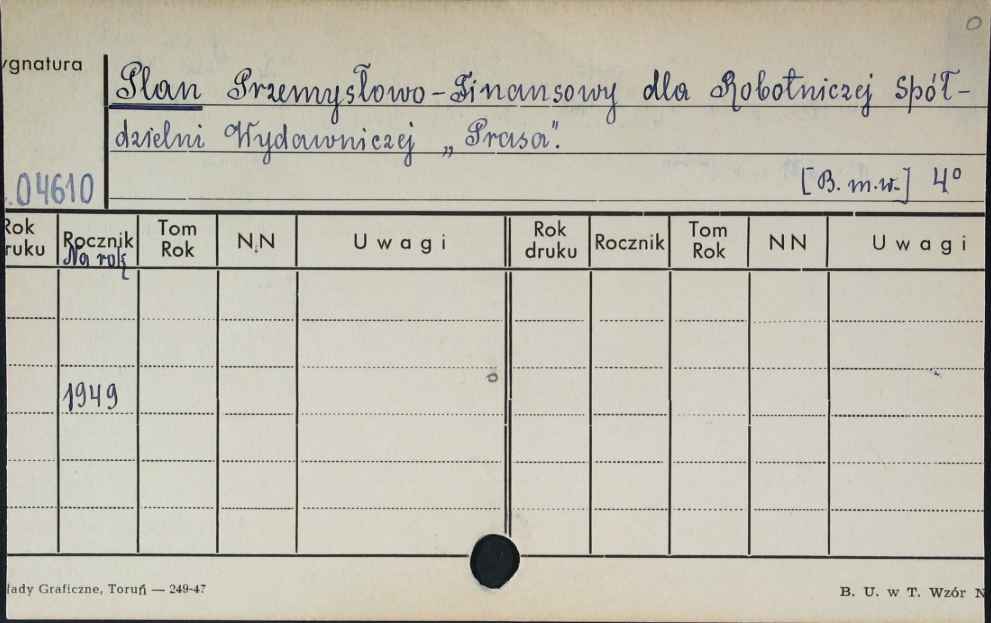 ygnatura
Plan Przemysłowo-Finansowy dla Robotniczej Spół-
dzielni Wydawniczej „Prasa".
04610
[B. m. w.] 4°
Rok druku Rocznik Tom Rok NN Uwagi Rok druku Rocznik Tom Rok NN Uwagi
Na rok
1949
łady Graficzne, Toruń — 249-47
B. U. w T. Wzór N